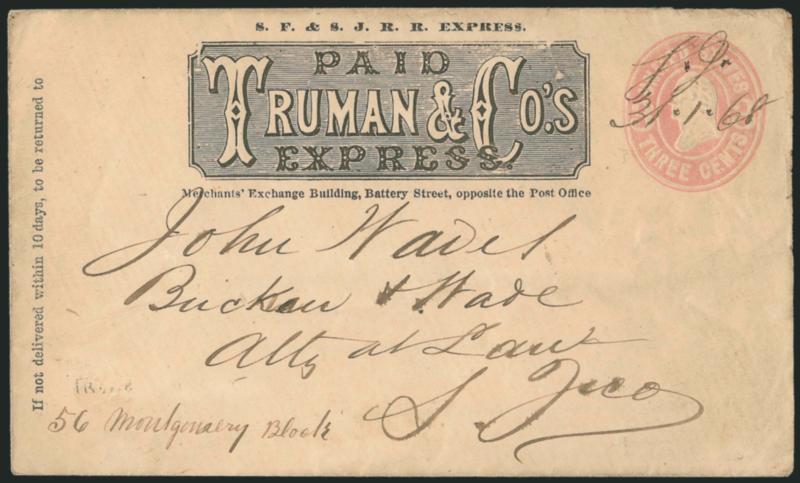 S. F. & S. J. R. R. EXPRESS.
PAID
TRUMAN & CO.'S
EXPRESS.
Merchants' Exchange Building, Battery Street, opposite the Post Office
THREE CENTS
31.1.68
If not delivered within 10 days, to be returned to
John
& Wade
Atty at Law
S. Fco
56 Montgomery Block